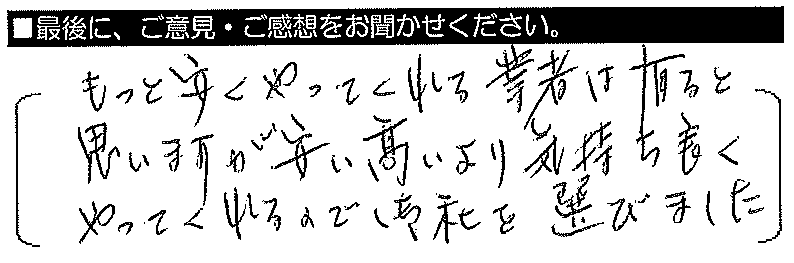 ■最後に、ご意見・ご感想をお聞かせください。
もっと安くやってくれる業者は有ると
思いますが安い高いより気持ち良く
やってくれるので御社を選びました